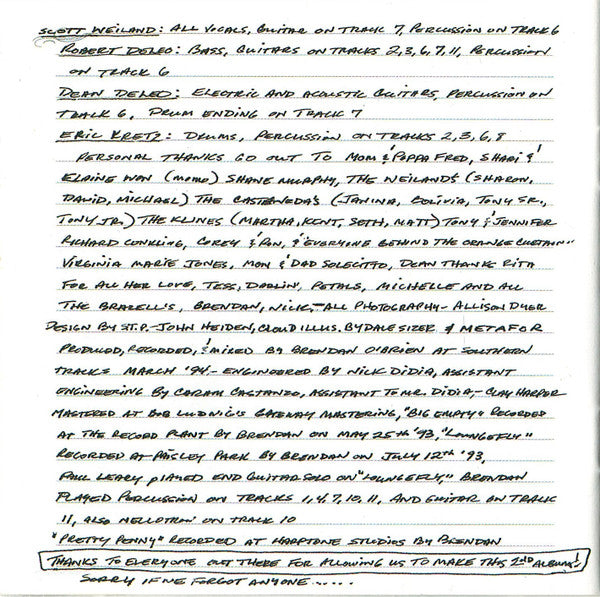 SCOTT WEILAND: ALL VOCALS, GUITAR ON TRACK 7, PERCUSSION ON TRACK 6
ROBERT DELEO: BASS, GUITARS ON TRACKS 2,3,6,7,11, PERCUSSION
ON TRACK 6
DEAN DELEO: ELECTRIC AND ACOUSTIC GUITARS, PERCUSSION ON
TRACK 6, DRUM ENDING ON TRACK 7
ERIC KRETZ: DRUMS, PERCUSSION ON TRACKS 2,3,6,8
PERSONAL THANKS GO OUT TO MOM & POPPA FRED, SHARI &
ELAINE WON (MOMO) SHANE MURPHY, THE WEILANDS (SHARON,
DAVID, MICHAEL) THE CASTANEDAS (JANINA, BOLIVIA, TONY SR.,
TONY JR.) THE KLINES (MARTHA, KENT, SETH, MATT) TONY & JENNIFER
RICHARD CONKLING, COREY & RON, & "EVERYONE BEHIND THE ORANGE CURTAIN"
VIRGINIA MARIE JONES, MOM & DAD SOLECITTO, DEAN THANKS RITA
FOR ALL HER LOVE, TESS, DARLIN', PETALS, MICHELLE AND ALL
THE BRAZELL'S, BRENDAN, NICK,-ALL PHOTOGRAPHY- ALLISON DYER
DESIGN BY ST.P.-JOHN HEIDEN, CLOUD ILLUS. BY DALE SIZER & METAFOR
PRODUCED, RECORDED, & MIXED BY BRENDAN O'BRIEN AT SOUTHERN
TRACKS MARCH '94- ENGINEERED BY NICK DIDIA, ASSISTANT
ENGINEERING BY CARAM CASTANZO, ASSISTANT TO MR. DIDIA,- CLAY HARPER
MASTERED AT BOB LUDWIG'S GATEWAY MASTERING, "BIG EMPTY" RECORDED
AT THE RECORD PLANT BY BRENDAN ON MAY 25TH '93, "LOUNGE FLY"
RECORDED AT PAISLEY PARK BY BRENDAN ON JULY 12TH '93,
PAUL LEARY PLAYED END GUITAR SOLO ON "LOUNGEFLY," BRENDAN
PLAYED PERCUSSION ON TRACKS 1,4,7,10,11, AND GUITAR ON TRACK
11, ALSO MELLOTRON ON TRACK 10
"PRETTY PENNY" RECORDED AT HARPTONE STUDIOS BY BRENDAN
THANKS TO EVERYONE OUT THERE FOR ALLOWING US TO MAKE THIS 2ND ALBUM!
SORRY IF WE FORGOT ANYONE......